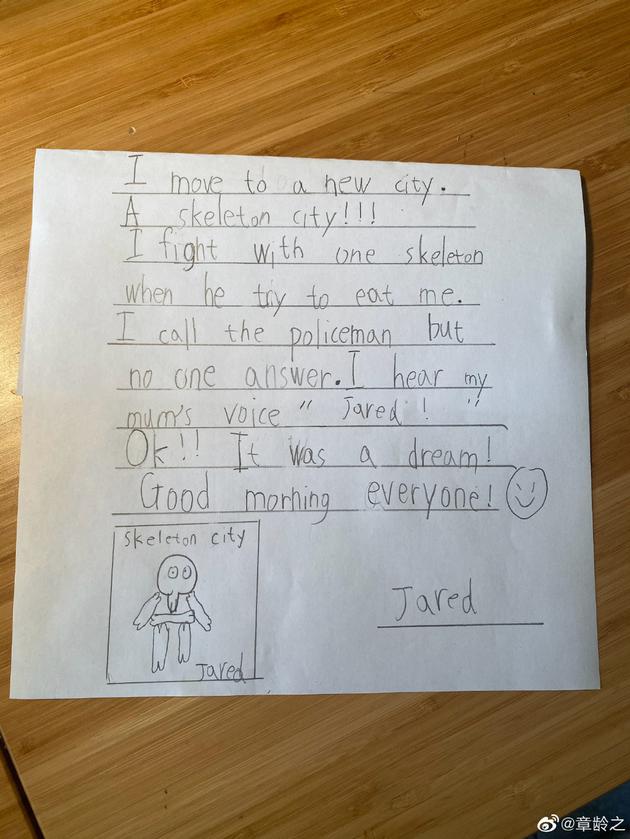 I move to a new city.
A skeleton city!!!
I fight with one skeleton
when he try to eat me.
I call the policeman but
no one answer. I hear my
mum's voice " Jared! "
Ok!! It was a dream!
Good morning everyone!
skeleton city
Jared
Jared
@章龄之